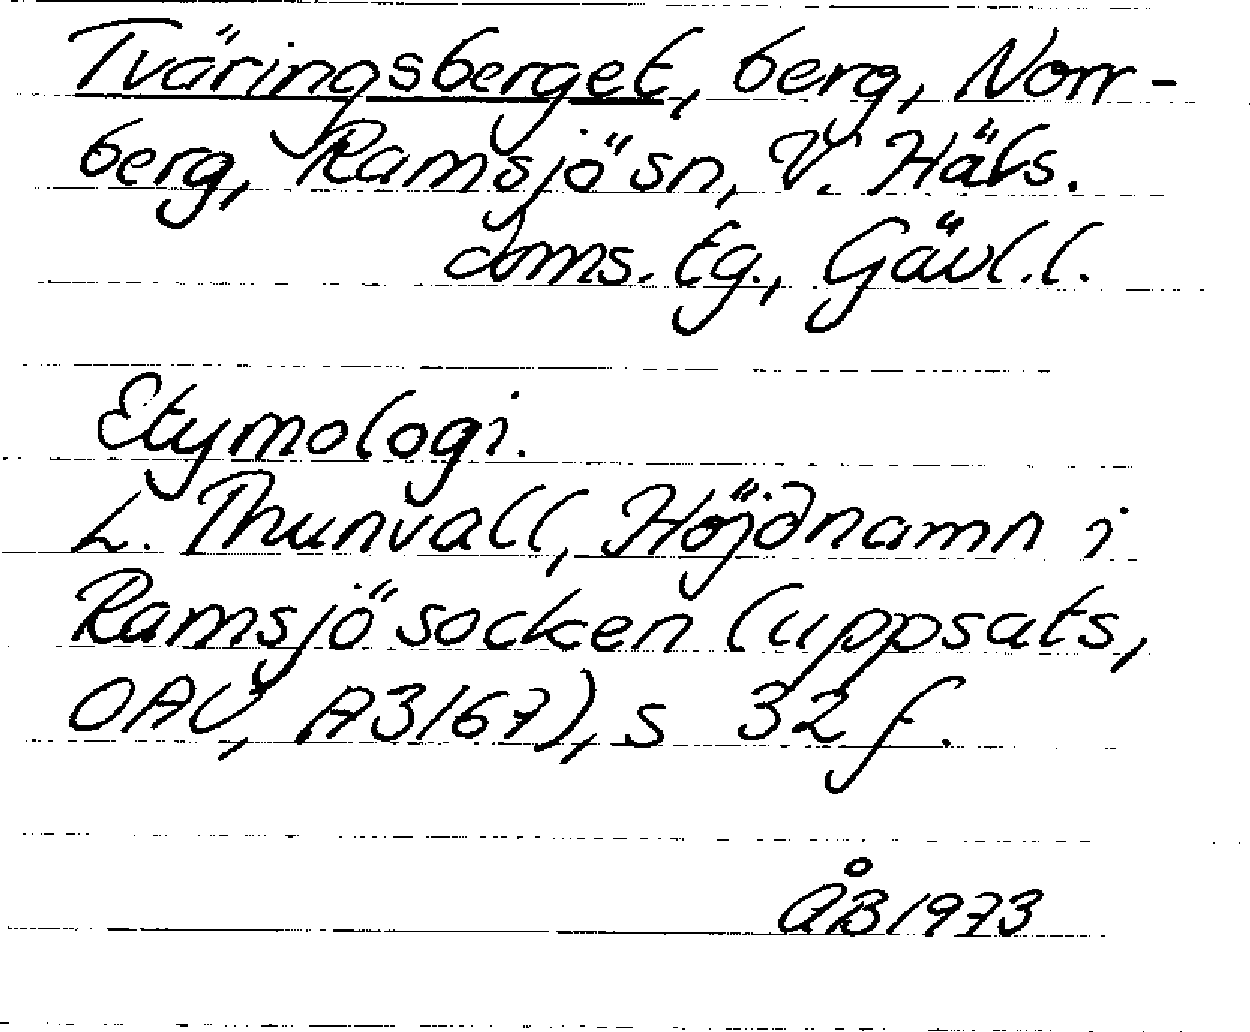 Tväringsberget, berg, Norr-
berg, Ramsjö sn, V. Häls.
doms. tg., Gävl. l.
Etymologi.
L. Thunvall, Höjdnamn i
Ramsjö socken (uppsats,
OAU, A3167), s 32 f.
ÅB 1973